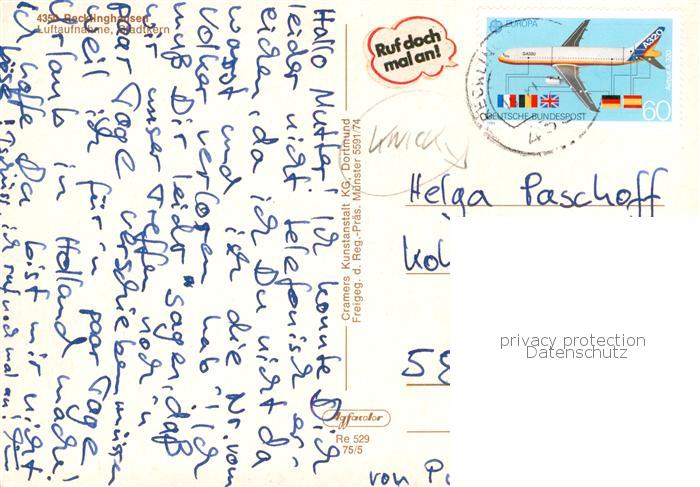 4350 Recklinghausen
Luftaufnahme, Stadtkern
Hallo Mutter! Ich konnte Dich
leider nicht telefonisch er-
reichen, da ich Du nicht da
warst und ich die Nr. vom
Volker verloren hab'! Ich
muß Dir leider sagen, daß
wir unser Treffen noch 'n
paar Tage verschieben müssen
weil ich für'n paar Tage
Urlaub in Holland mache!
Ich hoffe Du bist mir nicht
böse! Tschüss, ich ruf und mal an!
Cramers Kunstanstalt KG. Dortmund
Freigeg. d. Reg.-Präs. Münster 5591/74
Agfacolor
Re 529
75/5
Ruf doch
mal an!
EUROPA
A320
Airbus A320
60
DEUTSCHE BUNDESPOST
Helga Paschoff
privacy protection
Datenschutz
von